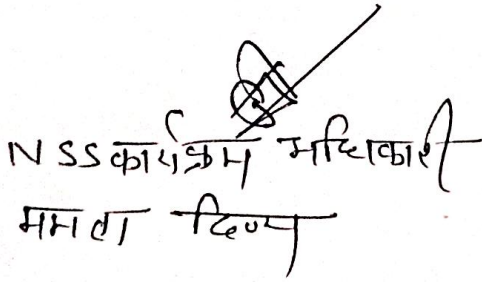 NSS कार्यक्रम अधिकारी
ममता दिव्य